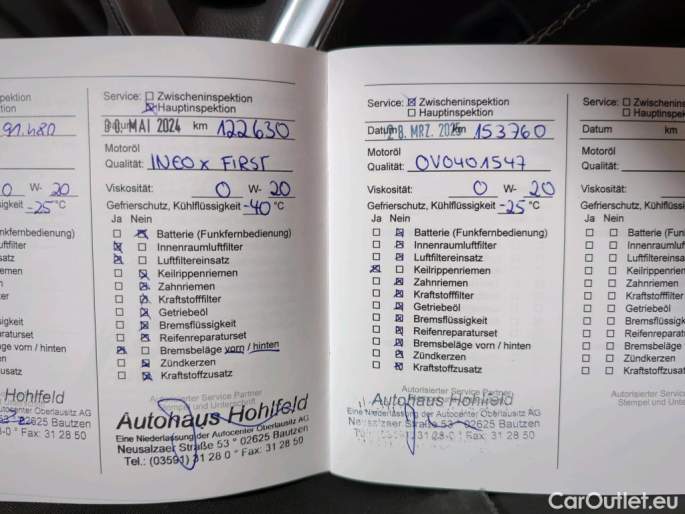 pektion
ktion
91.480
0 W- 20
sigkeit -25 °C
nkfernbedienung)
uftfilter
satz
men
n
ter
sigkeit
raturset
läge vorn / hinten
n
satz
Hohlfeld
Autocenter Oberlausitz AG
Bautzen
-0 ° Fax: 31 28 50
Service: Zwischeninspektion
Hauptinspektion
MAI 2024 km 122630
Motoröl
Qualität: INEO X FIRST
Viskosität: 0 W- 20
Gefrierschutz, Kühlflüssigkeit -40 °C
Ja Nein
Batterie (Funkfernbedienung)
Innenraumluftfilter
Luftfiltereinsatz
Keilrippenriemen
Zahnriemen
Kraftstofffilter
Getriebeöl
Bremsflüssigkeit
Reifenreparaturset
Bremsbeläge vorn / hinten
Zündkerzen
Kraftstoffzusatz
Autorisierter Service Partner
Stempel und Unterschrift
Autohaus Hohlfeld
Eine Niederlassung der Autocenter Oberlausitz AG
Neusalzaer Straße 53 ° 02625 Bautzen
Tel.: (03591) 31 28 0 ° Fax: 31 28 50
Service: Zwischeninspektion
Hauptinspektion
Datum 28. MRZ. 2025 km 153760
Motoröl
Qualität: OVO401547
Viskosität: 0 W- 20
Gefrierschutz, Kühlflüssigkeit -25 °C
Ja Nein
Batterie (Funkfernbedienung)
Innenraumluftfilter
Luftfiltereinsatz
Keilrippenriemen
Zahnriemen
Kraftstofffilter
Getriebeöl
Bremsflüssigkeit
Reifenreparaturset
Bremsbeläge vorn / hinten
Zündkerzen
Kraftstoffzusatz
Autorisierter Service Partner
Stempel und Unterschrift
Autohaus Hohlfeld
Eine Niederlassung der Autocenter Oberlausitz AG
Neusalzaer Straße 53 ° 02625 Bautzen
(03591) 31 28-0 ° Fax: 31 28 50
Service: Zwischen
Hauptins
Datum km
Motoröl
Qualität:
Viskosität:
Gefrierschutz, Kühlflüss
Ja Nein
Batterie (Fu
Innenraumlu
Luftfilterein
Keilrippenri
Zahnriemen
Kraftstofffilt
Getriebeöl
Bremsflüss
Reifenrepa
Bremsbelä
Zündkerze
Kraftstoffzu
Autorisierter
Stempel un
CarOutlet.eu